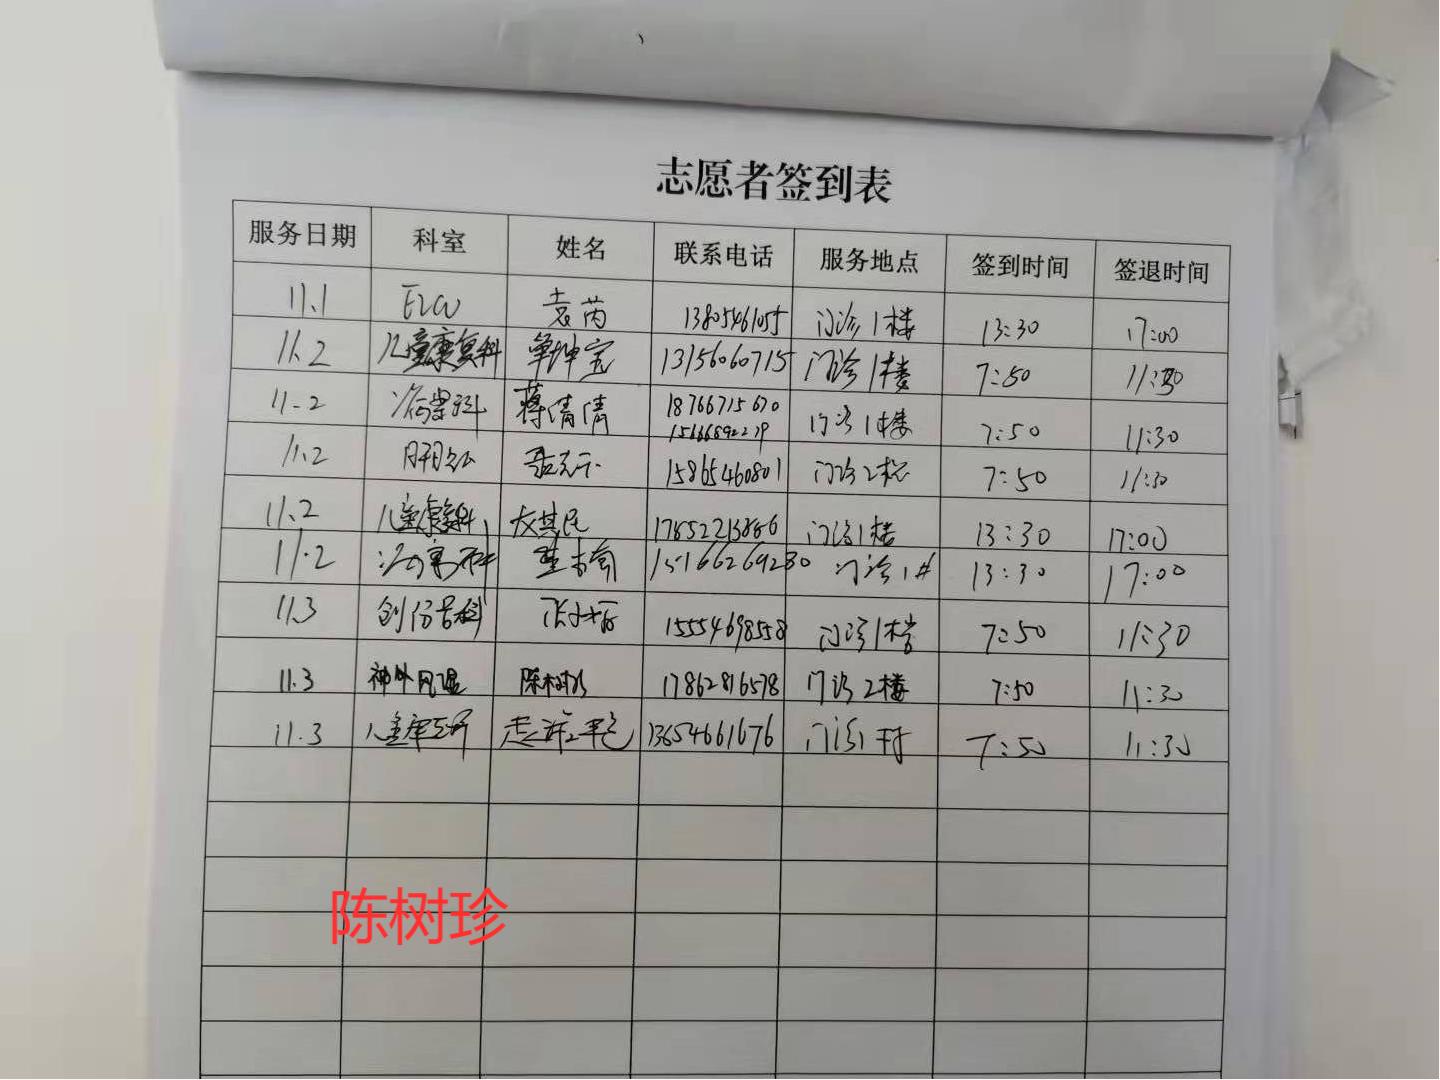 志愿者签到表
服务日期 科室 姓名 联系电话 服务地点 签到时间 签退时间
11.1 EICU 袁芮 1380546105 门诊1楼 13:30 17:00
11.2 儿童康复科 单坤宝 13156060715 门诊1楼 7:50 11:30
11.2 蒋倩倩 18766715670 门诊1楼 7:50 11:30
11.2 15865460801 门诊2楼 7:50 11:30
11.2 儿童康复科 门诊1楼 13:30 17:00
11.2 15166269230 门诊1# 13:30 17:00
11.3 创伤骨科 15554698558 门诊1楼 7:50 11:30
11.3 陈树珍 17862816578 门诊2楼 7:50 11:30
11.3 13654661676 门诊1 7:50 11:30
陈树珍